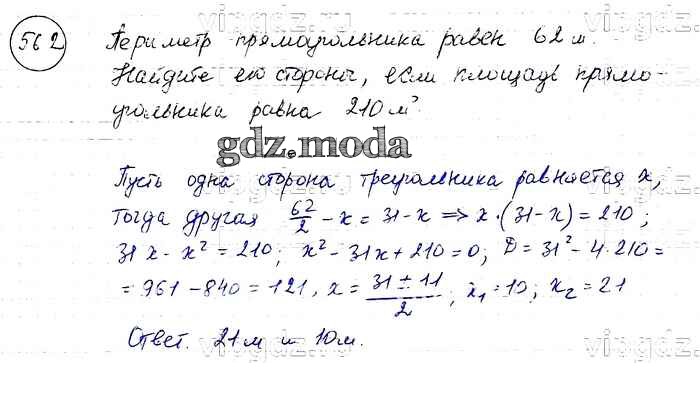 562 Периметр прямоугольника равен 62 м.
Найдите его стороны, если площадь прямо-
угольника равна 210 м².
gdz.moda
Пусть одна сторона треугольника равняется x,
тогда другая 62/2 - x = 31 - x ⇒ x·(31-x) = 210;
31x - x² = 210; x² - 31x + 210 = 0; D = 31² - 4·210 =
= 961 - 840 = 121, x = (31 ± 11)/2; x₁ = 10; x₂ = 21
Ответ. 21 м и 10 м.